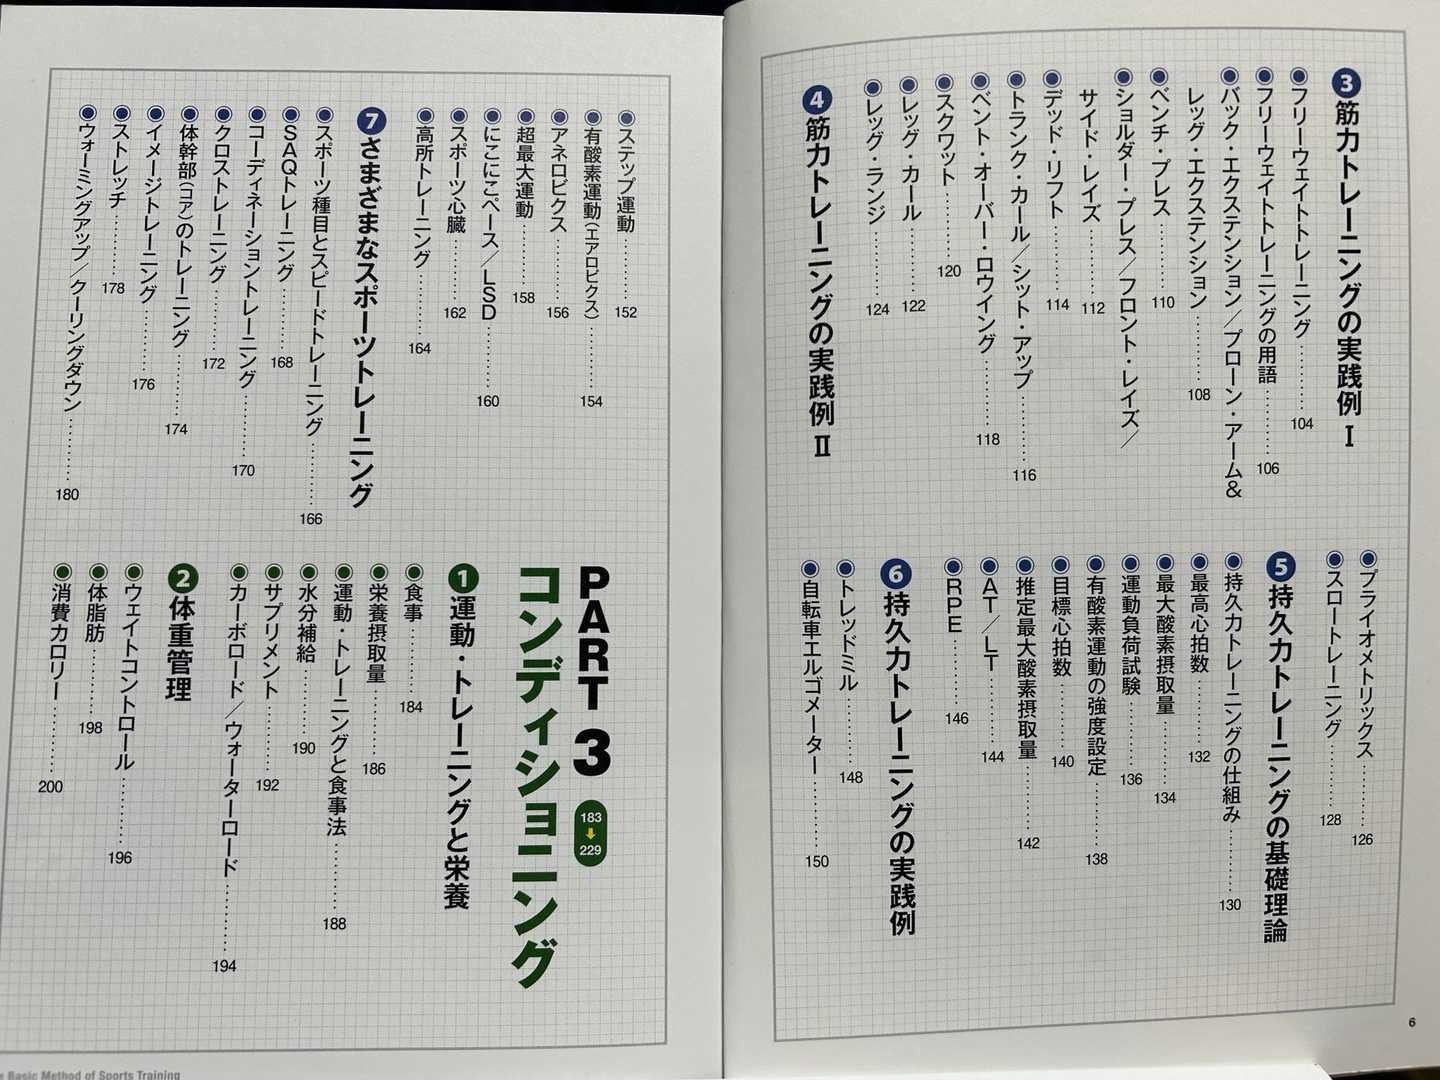 ❸筋力トレーニングの実践例 Ⅰ
◉フリーウェイトトレーニング………104
◉フリーウェイトトレーニングの用語………106
◉バック・エクステンション／プローン・アーム&
レッグ・エクステンション………108
◉ベンチ・プレス………110
◉ショルダー・プレス／フロント・レイズ／
サイド・レイズ………112
◉デッド・リフト………114
◉トランク・カール／シット・アップ………116
◉ベント・オーバー・ロウイング………118
◉スクワット………120
◉レッグ・カール………122
◉レッグ・ランジ………124
❹筋力トレーニングの実践例 Ⅱ
◉プライオメトリックス………126
◉スロートレーニング………128
❺持久力トレーニングの基礎理論
◉持久力トレーニングの仕組み………130
◉最高心拍数………132
◉最大酸素摂取量………134
◉運動負荷試験………136
◉有酸素運動の強度設定………138
◉目標心拍数………140
◉推定最大酸素摂取量………142
◉AT／LT………144
◉RPE………146
❻持久力トレーニングの実践例
◉トレッドミル………148
◉自転車エルゴメーター………150
6
◉ステップ運動………152
◉有酸素運動(エアロビクス)………154
◉アネロビクス………156
◉超最大運動………158
◉にこにこペース／LSD………160
◉スポーツ心臓………162
◉高所トレーニング………164
❼さまざまなスポーツトレーニング
◉スポーツ種目とスピードトレーニング………166
◉SAQトレーニング………168
◉コーディネーショントレーニング………170
◉クロストレーニング………172
◉体幹部(コア)のトレーニング………174
◉イメージトレーニング………176
◉ストレッチ………178
◉ウォーミングアップ／クーリングダウン………180
PART 3 183➡229
コンディショニング
❶運動・トレーニングと栄養
◉食事………184
◉栄養摂取量………186
◉運動・トレーニングと食事法………188
◉水分補給………190
◉サプリメント………192
◉カーボロード／ウォーターロード………194
❷体重管理
◉ウェイトコントロール………196
◉体脂肪………198
◉消費カロリー………200
e Basic Method of Sports Training